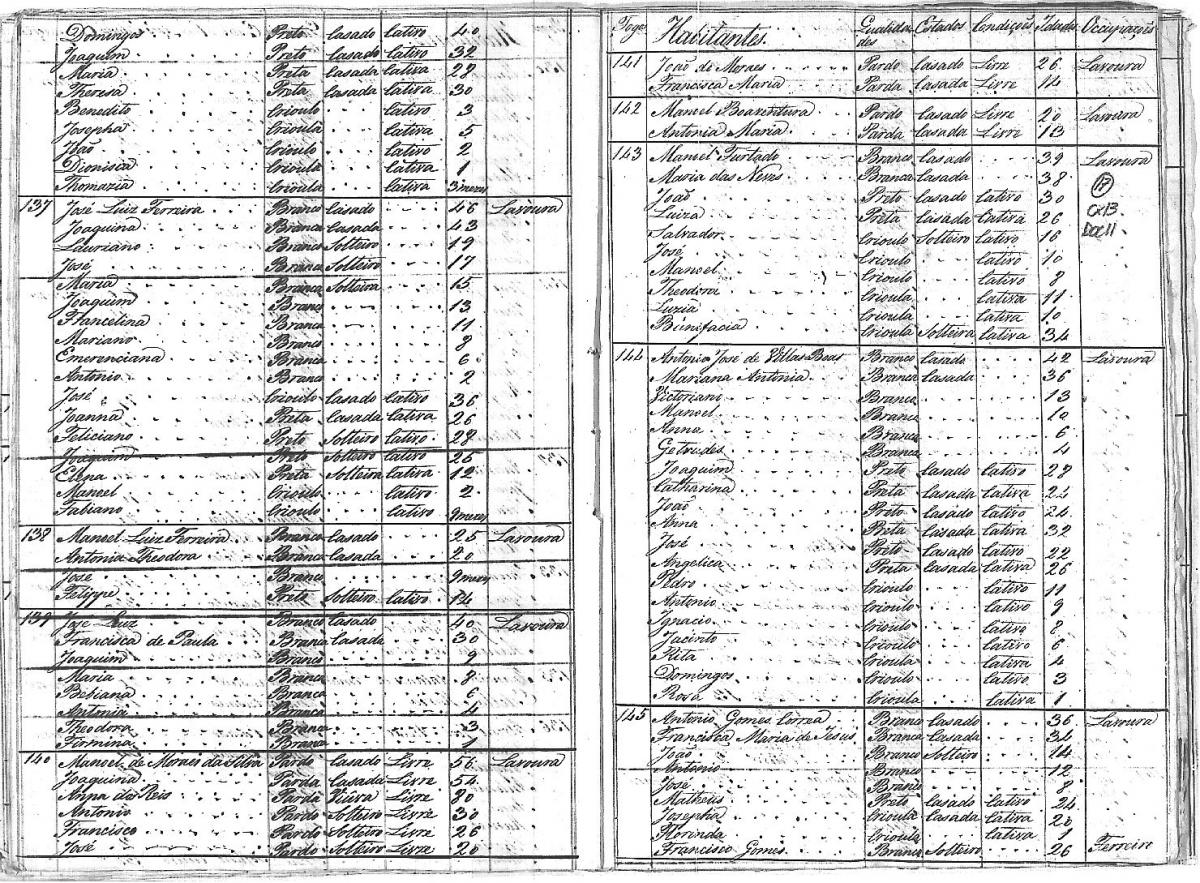 Domingos Preto Casado Cativo 40
Joaquim Preto Casado Cativo 32
Maria Preta Casada Cativa 28
Theresa Preta Casada Cativa 30
Benedito Crioulo Cativo 3
Josepha Crioula Cativa 5
João Crioulo Cativo 2
Dionisca Crioula Cativa 1
Thomazia Crioula Cativa 3 mezes
137 José Luiz Ferreira Branco Casado 46 Lavoura
Joaquina Branca Casada 43
Lauriano Branco Solteiro 19
José Branco Solteiro 17
Maria Branca Solteira 15
Joaquim Branco 13
Francelina Branca 11
Mariano Branco 8
Emerenciana Branca 6
Antonio Branco 2
José Crioulo Casado Cativo 36
Joanna Preta Casada Cativa 26
Feliciano Preto Solteiro Cativo 28
Joaquim Preto Solteiro Cativo 26
Elena Preta Solteira Cativa 12
Manoel Crioulo Cativo 2
Fabiano Crioulo Cativo 9 mezes
138 Manoel Luiz Ferreira Branco Casado 25 Lavoura
Antonia Theodora Branca Casada 20
José Branco 9 mezes
Felippe Preto Solteiro Cativo 14
139 José Luiz Branco Casado 40 Lavoura
Francisca de Paula Branca Casada 30
Joaquim Branco 9
Maria Branca 8
Bebiana Branca 6
Antonia Branca 4
Theodora Branca 3
Firmina Branca 1
140 Manoel de Moraes da Silva Pardo Casado Livre 56 Lavoura
Joaquina Parda Casada Livre 54
Anna dos Reis Parda Viuva Livre 80
Antonio Pardo Solteiro Livre 30
Francisco Pardo Solteiro Livre 26
José Pardo Solteiro Livre 20
Fogos Habitantes. Qualidades Estados Condições Idades Occupações
141 João de Moraes Pardo Casado Livre 26 Lavoura
Francisca Maria Parda Casada Livre 14
142 Manoel Boaventura Pardo Casado Livre 20 Lavoura
Antonia Maria Parda Casada Livre 13
143 Manoel Furtado Branco Casado 39 Lavoura
Maria das Neves Branca Casada 38
João Preto Casado Cativo 30
Luiza Preta Casada Cativa 26
Salvador Crioulo Solteiro Cativo 16
José Crioulo Cativo 10
Manoel Crioulo Cativo 8
Theodora Crioula Cativa 11
Luzia Crioula Cativa 10
Bunifacia Crioula Solteira Cativa 34
17
CX13
Doc11
144 Antonio José de Villas Boas Branco Casado 42 Lavoura
Mariana Antonia Branca Casada 36
Victoriano Branco 13
Manoel Branco 10
Anna Branca 6
Getrudes Branca 4
Joaquim Preto Casado Cativo 28
Catharina Preta Casada Cativa 24
João Preto Casado Cativo 24
Anna Preta Casada Cativa 32
José Preto Casado Cativo 22
Angelica Preta Casada Cativa 26
Pedro Crioulo Cativo 11
Antonio Crioulo Cativo 9
Ignacio Crioulo Cativo 8
Jacinto Crioulo Cativo 6
Rita Crioula Cativa 4
Domingos Crioulo Cativo 3
Rosa Crioula Cativa 1
145 Antonio Gomes Correa Branco Casado 36 Lavoura
Francisca Maria de Jesus Branca Casada 34
João Branco Solteiro 14
Antonio Branco 12
José Branco 8
Matheus Preto Casado Cativo 24
Josepha Crioula Casada Cativa 20
Florinda Crioula Cativa 1
Francisco Gomes Branco Solteiro 26 Ferreiro